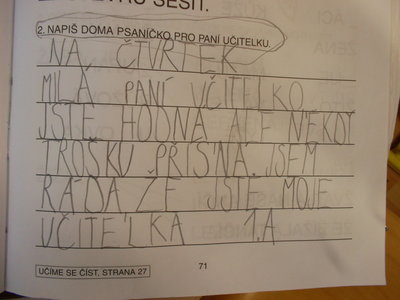 SEŠIT.
2. NAPIŠ DOMA PSANÍČKO PRO PANÍ UČITELKU.
NA ČTVRTEK
MILÁ PANÍ UČITELKO
JSTE HODNÁ ALE NĚKDY
TROŠKU PŘÍSNÁ. JSEM
RÁDA ŽE JSTE MOJE
UČITELKA 1.A
71
UČÍME SE ČÍST, STRANA 27